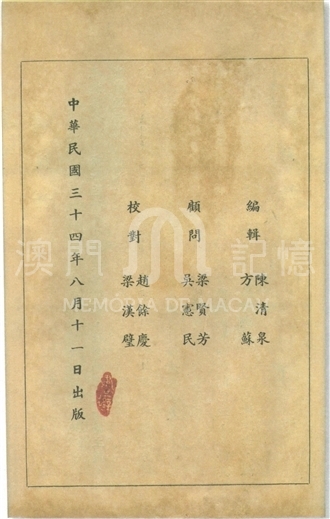 編輯
陳清泉
方蘇
顧問
梁賢芳
吳憲民
校對
趙餘慶
梁漢璧
中華民國三十四年八月十一日出版
澳門記憶
MEMÓRIA DE MACAU